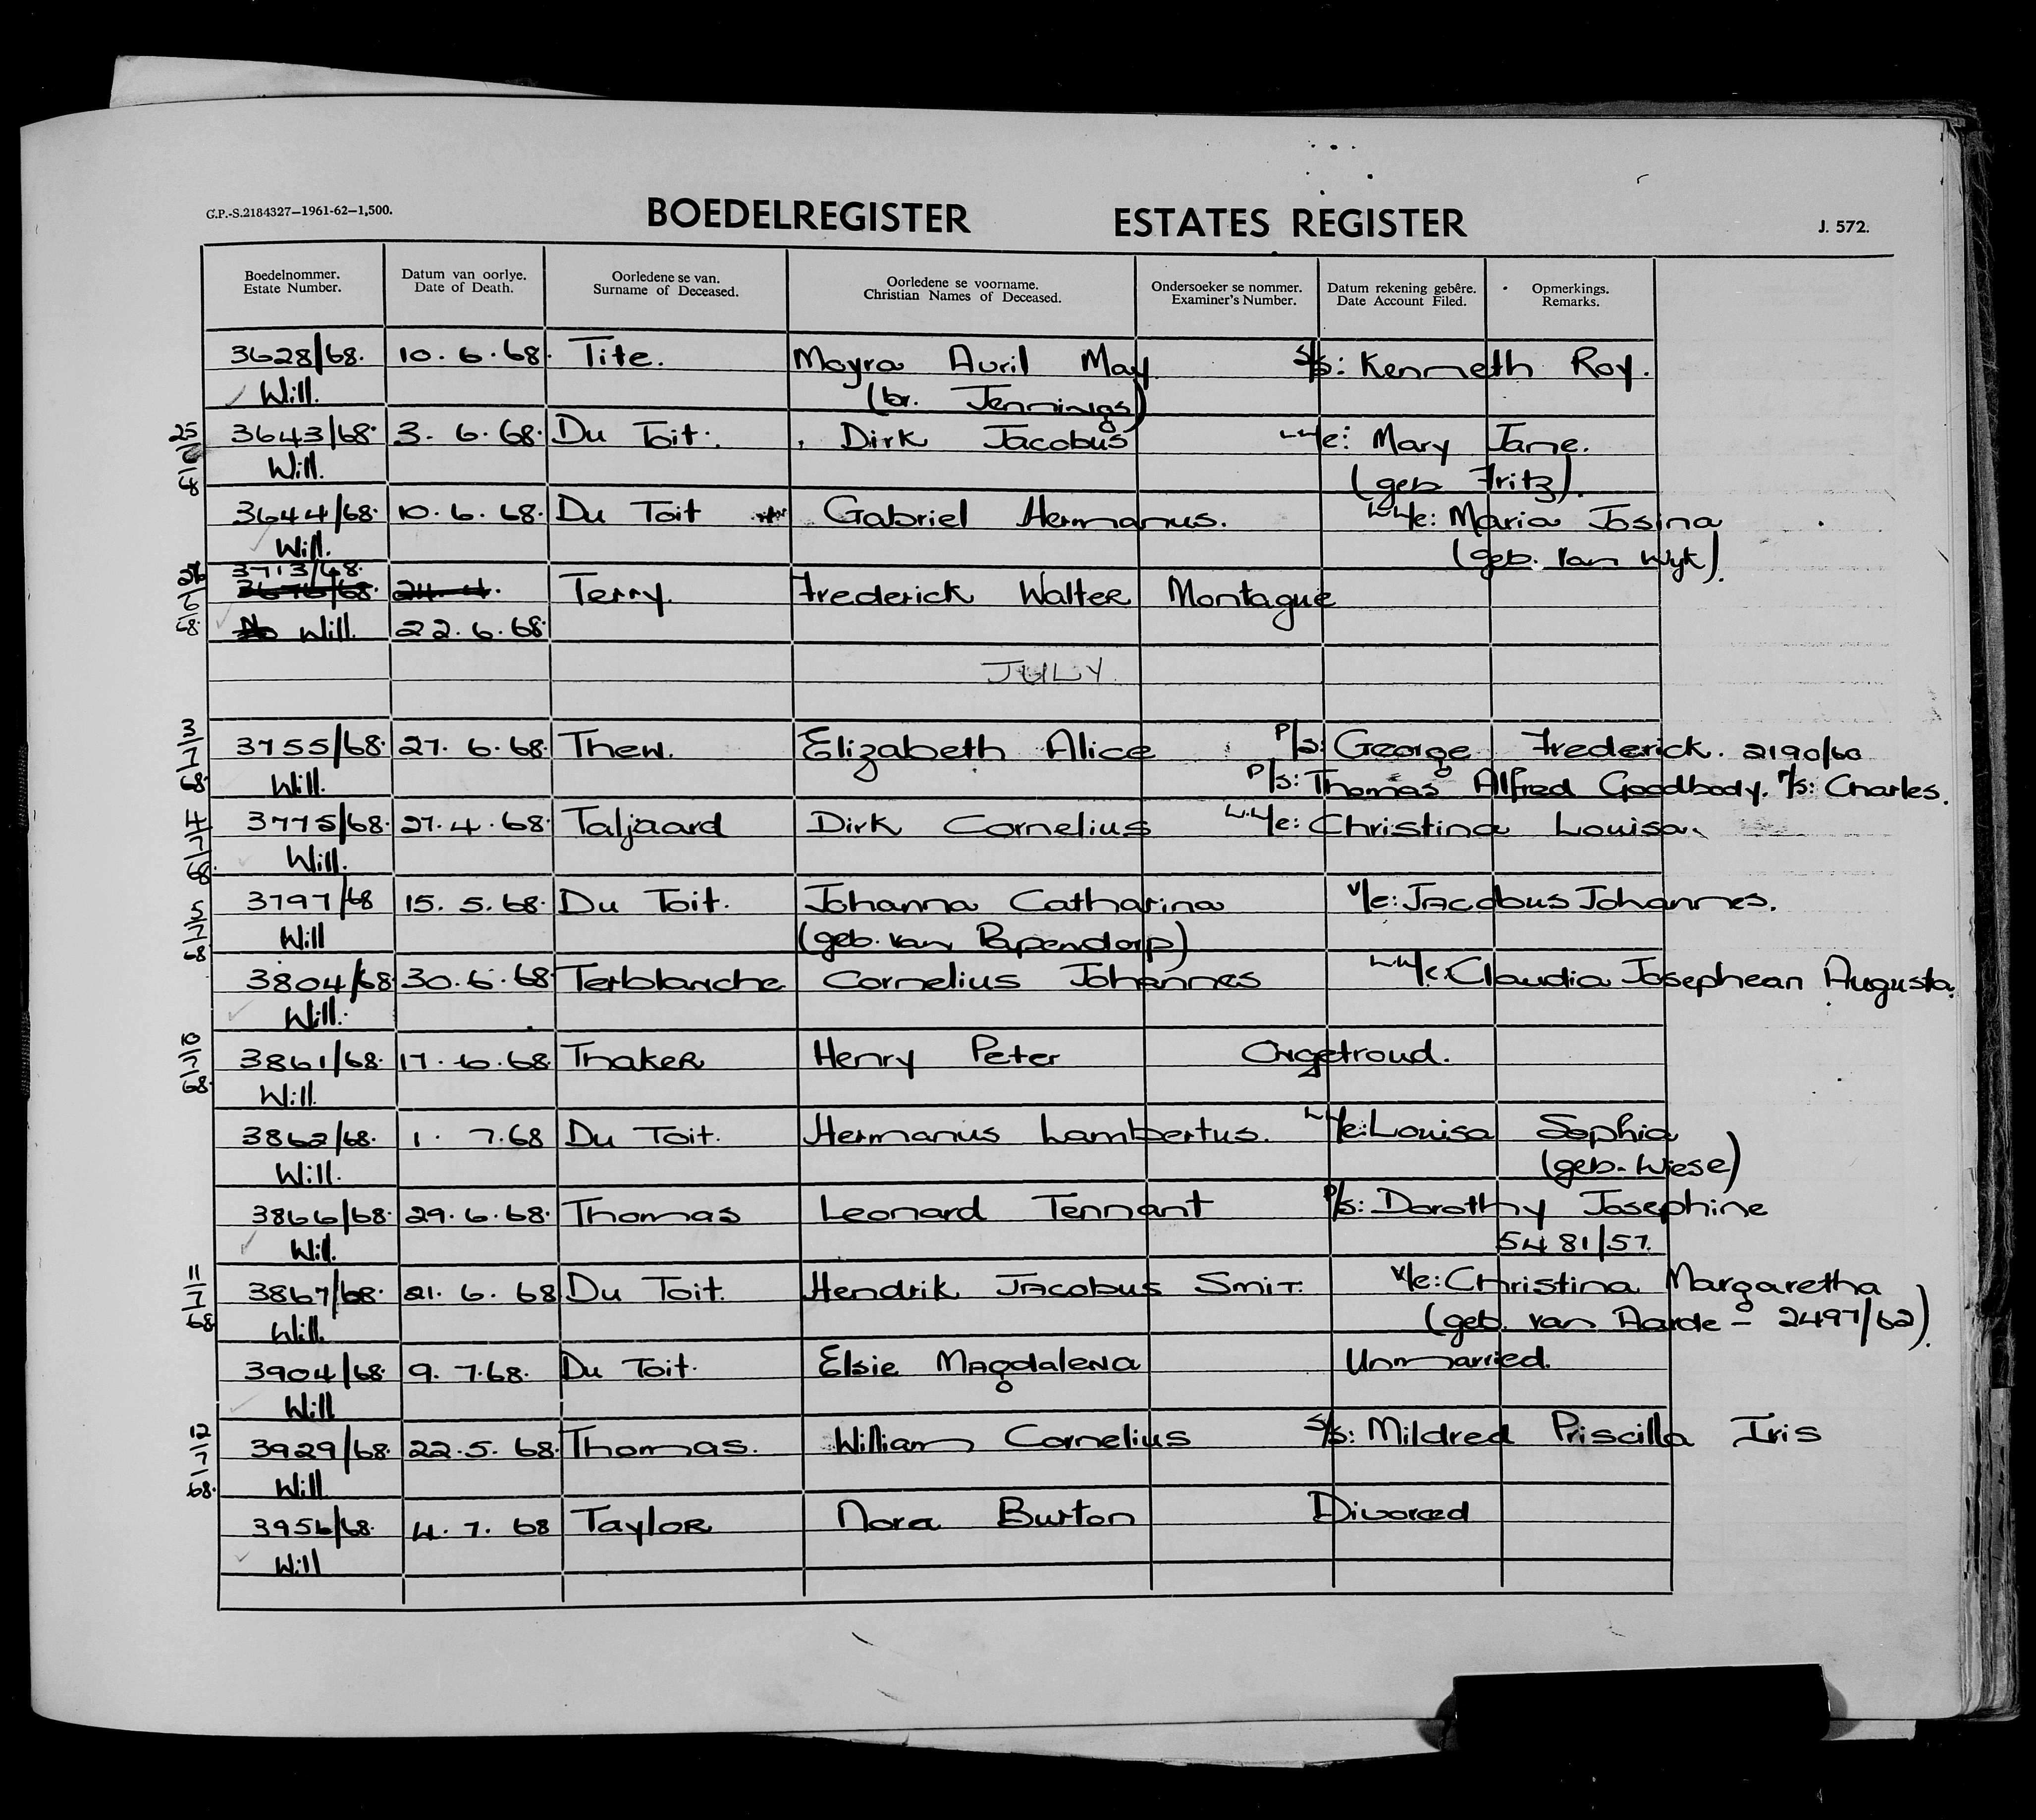 G.P.-S.2184327—1961-62—1,500. BOEDELREGISTER ESTATES REGISTER J. 572.
Boedelnommer. Datum van oorlye. Oorledene se van. Oorledene se voorname. Ondersoeker se nommer. Datum rekening gebêre. Opmerkings.
Estate Number. Date of Death. Surname of Deceased. Christian Names of Deceased. Examiner's Number. Date Account Filed. Remarks.
3628/68. 10.6.68. Tite. Moyra Avril May S/s: Kenneth Roy.
Will. (br. Jennings)
25/6/68 3643/68. 3.6.68. Du Toit. Dirk Jacobus W/e: Mary Jane.
Will. (geb Fritz).
3644/68. 10.6.68. Du Toit Gabriel Hermanus. W/e: Maria Josina
Will. (geb. Van Wyk).
3713/68.
26/6/68. Terry. Frederick Walter Montague
Will. 22.6.68.
JULY.
3/7/68 3755/68. 27.6.68. Thew. Elizabeth Alice P/s: George Frederick. 2190/60
Will. P/s: Thomas Alfred Goodbody. P/s: Charles.
4/7/68. 3775/68. 27.4.68. Taljaard Dirk Cornelius W/e: Christina Louisa.
Will.
5/7/68 3797/68 15.5.68. Du Toit. Johanna Catharina V/e: Jacobus Johannes.
Will (geb. van Papendorp)
3804/68 30.6.68 Terblanche Cornelius Johannes W/e: Claudia Josephean Augusta.
Will.
10/7/68. 3861/68. 17.6.68. Thaker Henry Peter Ongetroud.
Will.
3862/68. 1.7.68 Du Toit. Hermanus Lambertus. W/e: Louisa Sophia
Will. (geb. Wiese)
3866/68. 29.6.68. Thomas Leonard Tennant P/s: Dorothy Josephine
Will. 5481/57.
11/7/68 3867/68. 21.6.68 Du Toit. Hendrik Jacobus Smit. V/e: Christina Margaretha
Will. (geb. van Aarde - 2497/62).
3904/68. 9.7.68. Du Toit. Elsie Magdalena Unmarried.
Will
12/7/68. 3929/68. 22.5.68. Thomas. William Cornelius S/s: Mildred Priscilla Iris
Will
3956/68. 4.7.68 Taylor Nora Burton Divorced
Will